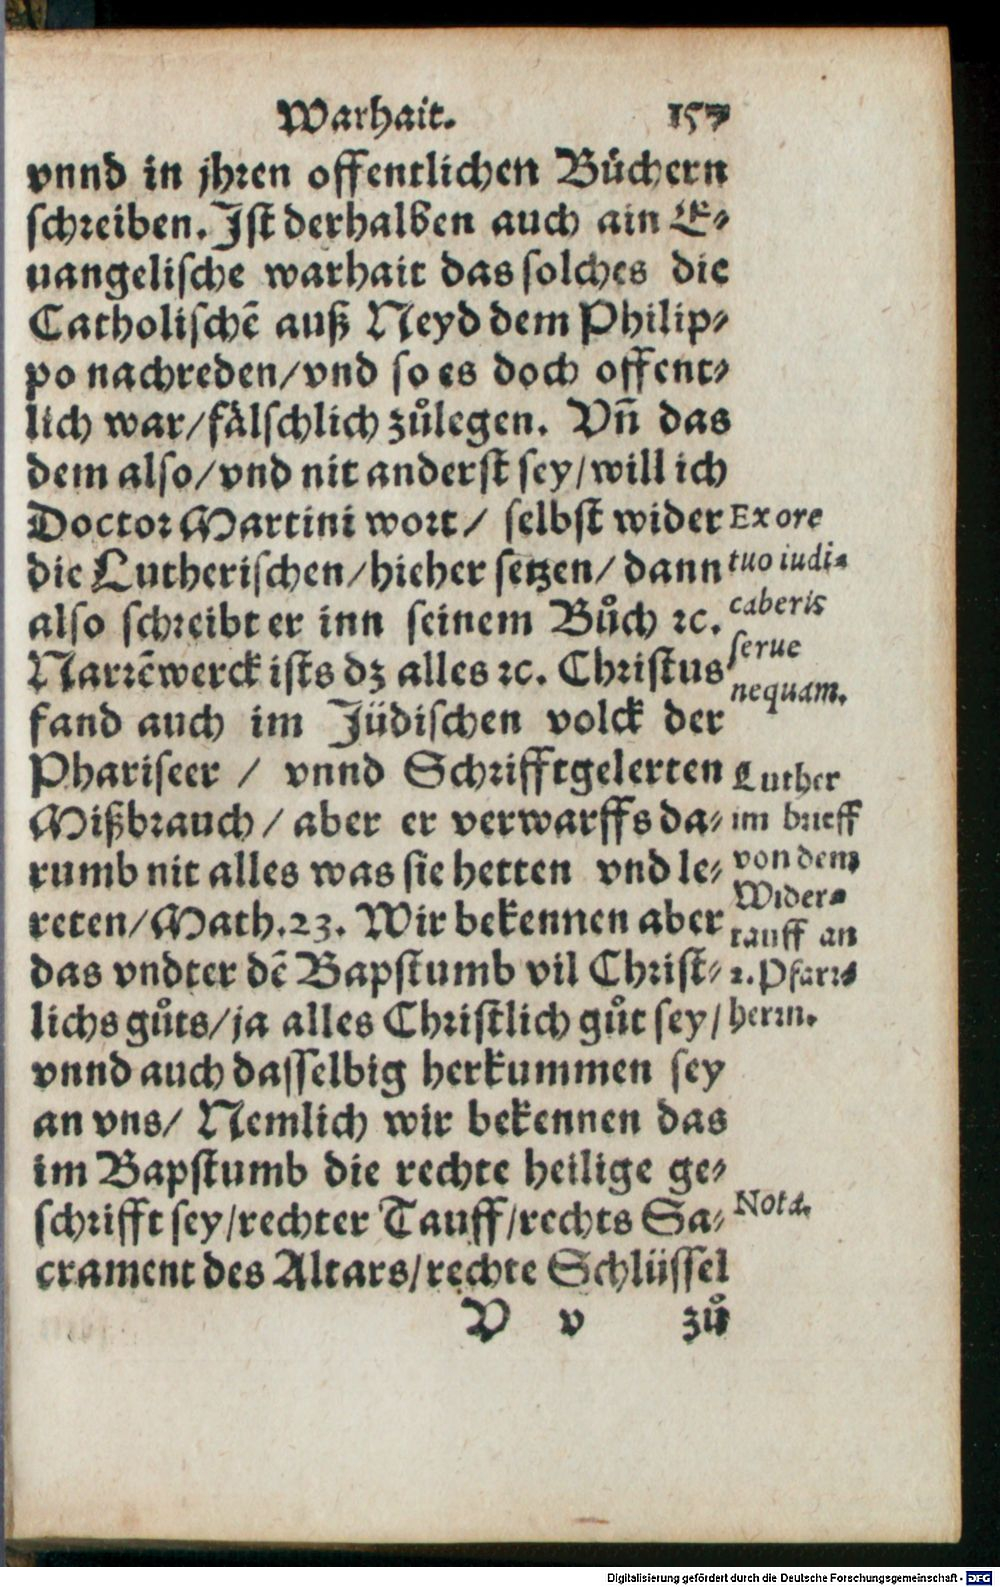 Warhait. 157
vnnd in jhren offentlichen Bůchern
schreiben. Ist derhalben auch ain E-
uangelische warhait das solches die
Catholischẽ auß Neyd dem Philip-
po nachreden/vnd so es doch offent-
lich war/fälschlich zůlegen. Vñ das
dem also/vnd nit anderst sey/will ich
Doctor Martini wort/ selbst wider
die Lutherischen/hieher setzen/dann
also schreibt er inn seinem Bůch ꝛc.
Narrẽwerck ists dz alles ꝛc. Christus
fand auch im Jüdischen volck der
Phariseer / vnnd Schrifftgelerten
Mißbrauch/ aber er verwarffs da-
rumb nit alles was sie hetten vnd le-
reten/Math.23. Wir bekennen aber
das vndter dẽ Bapstumb vil Christ-
lichs gůts/ja alles Christlich gůt sey/
vnnd auch dasselbig herkummen sey
an vns/ Nemlich wir bekennen das
im Bapstumb die rechte heilige ge-
schrifft sey/rechter Tauff/rechts Sa-
crament des Altars/rechte Schlüssel
V v zů
Ex ore
tuo iudi-
caberis
serue
nequam.
Luther
im brieff
von dem
Wider-
tauff an
2. Pfarr-
herrn.
Nota.
Digitalisierung gefördert durch die Deutsche Forschungsgemeinschaft - DFG